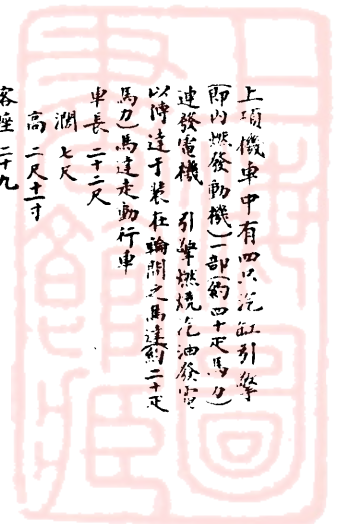 上項機車中有四只汽缸引擎
(即內燃發動機)一部(約四十疋馬力)
連發電機　引擎燃燒汽油發電
以傳達于裝在輪間之馬達(約二十疋
馬力)馬達走動行車
車長　二十二尺
濶　七尺
高　二尺十一寸
客座　二十九